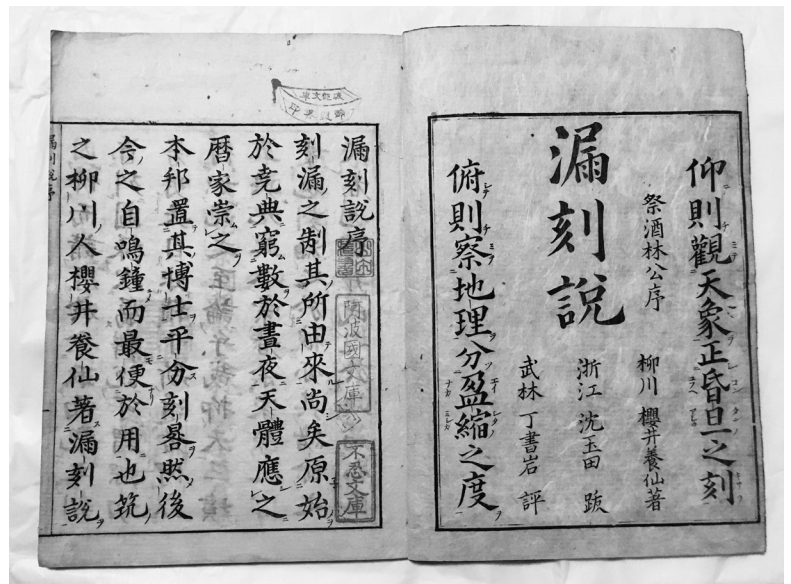 仰則觀天象正昏旦之刻
祭酒林公序
柳川 櫻井養仙著
漏刻說
浙江 沈玉田 跋
武林 丁書岩 評
俯則察地理分盈縮之度
漏刻說序
刻漏之制其所由來尚矣原始
於堯典窮數於晝夜天體應之
曆家崇之
本邦置其博士平分刻晷然後
今之自鳴鐘而最便於用也筑
之柳川人櫻井養仙著漏刻說
阿波國文庫
不忍文庫
漏刻說序